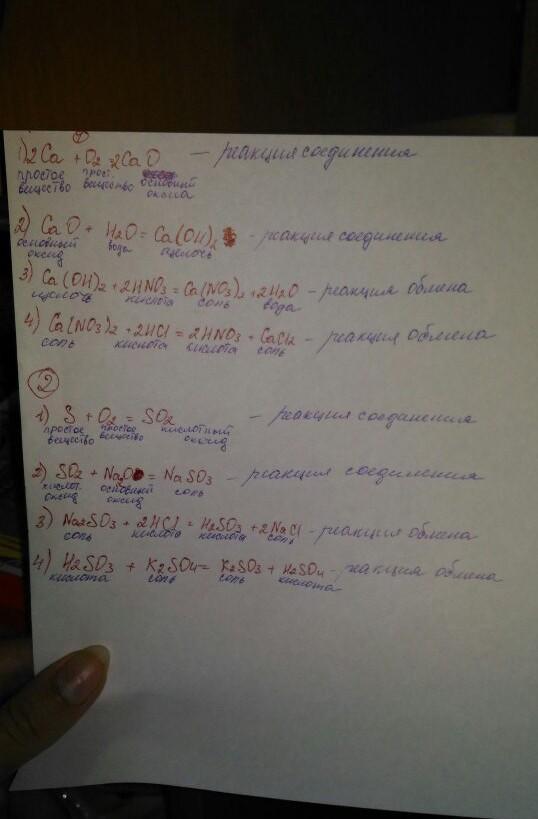 ①
1) 2Ca + O2 = 2CaO — реакция соединения
простое прост. основный
вещество вещество оксид
2) CaO + H2O = Ca(OH)2 - реакция соединения
основный вода щелочь
оксид
3) Ca(OH)2 + 2HNO3 = Ca(NO3)2 + 2H2O - реакция обмена
щелочь кислота соль вода
4) Ca(NO3)2 + 2HCl = 2HNO3 + CaCl2 - реакция обмена
соль кислота кислота соль
②
1) S + O2 = SO2 - реакция соединения
простое простое кислотный
вещество вещество оксид
2) SO2 + Na2O = NaSO3 - реакция соединения
кислот. основный соль
оксид оксид
3) Na2SO3 + 2HCl = H2SO3 + 2NaCl - реакция обмена
соль кислота кислота соль
4) H2SO3 + K2SO4 = K2SO3 + H2SO4 - реакция обмена
кислота соль соль кислота